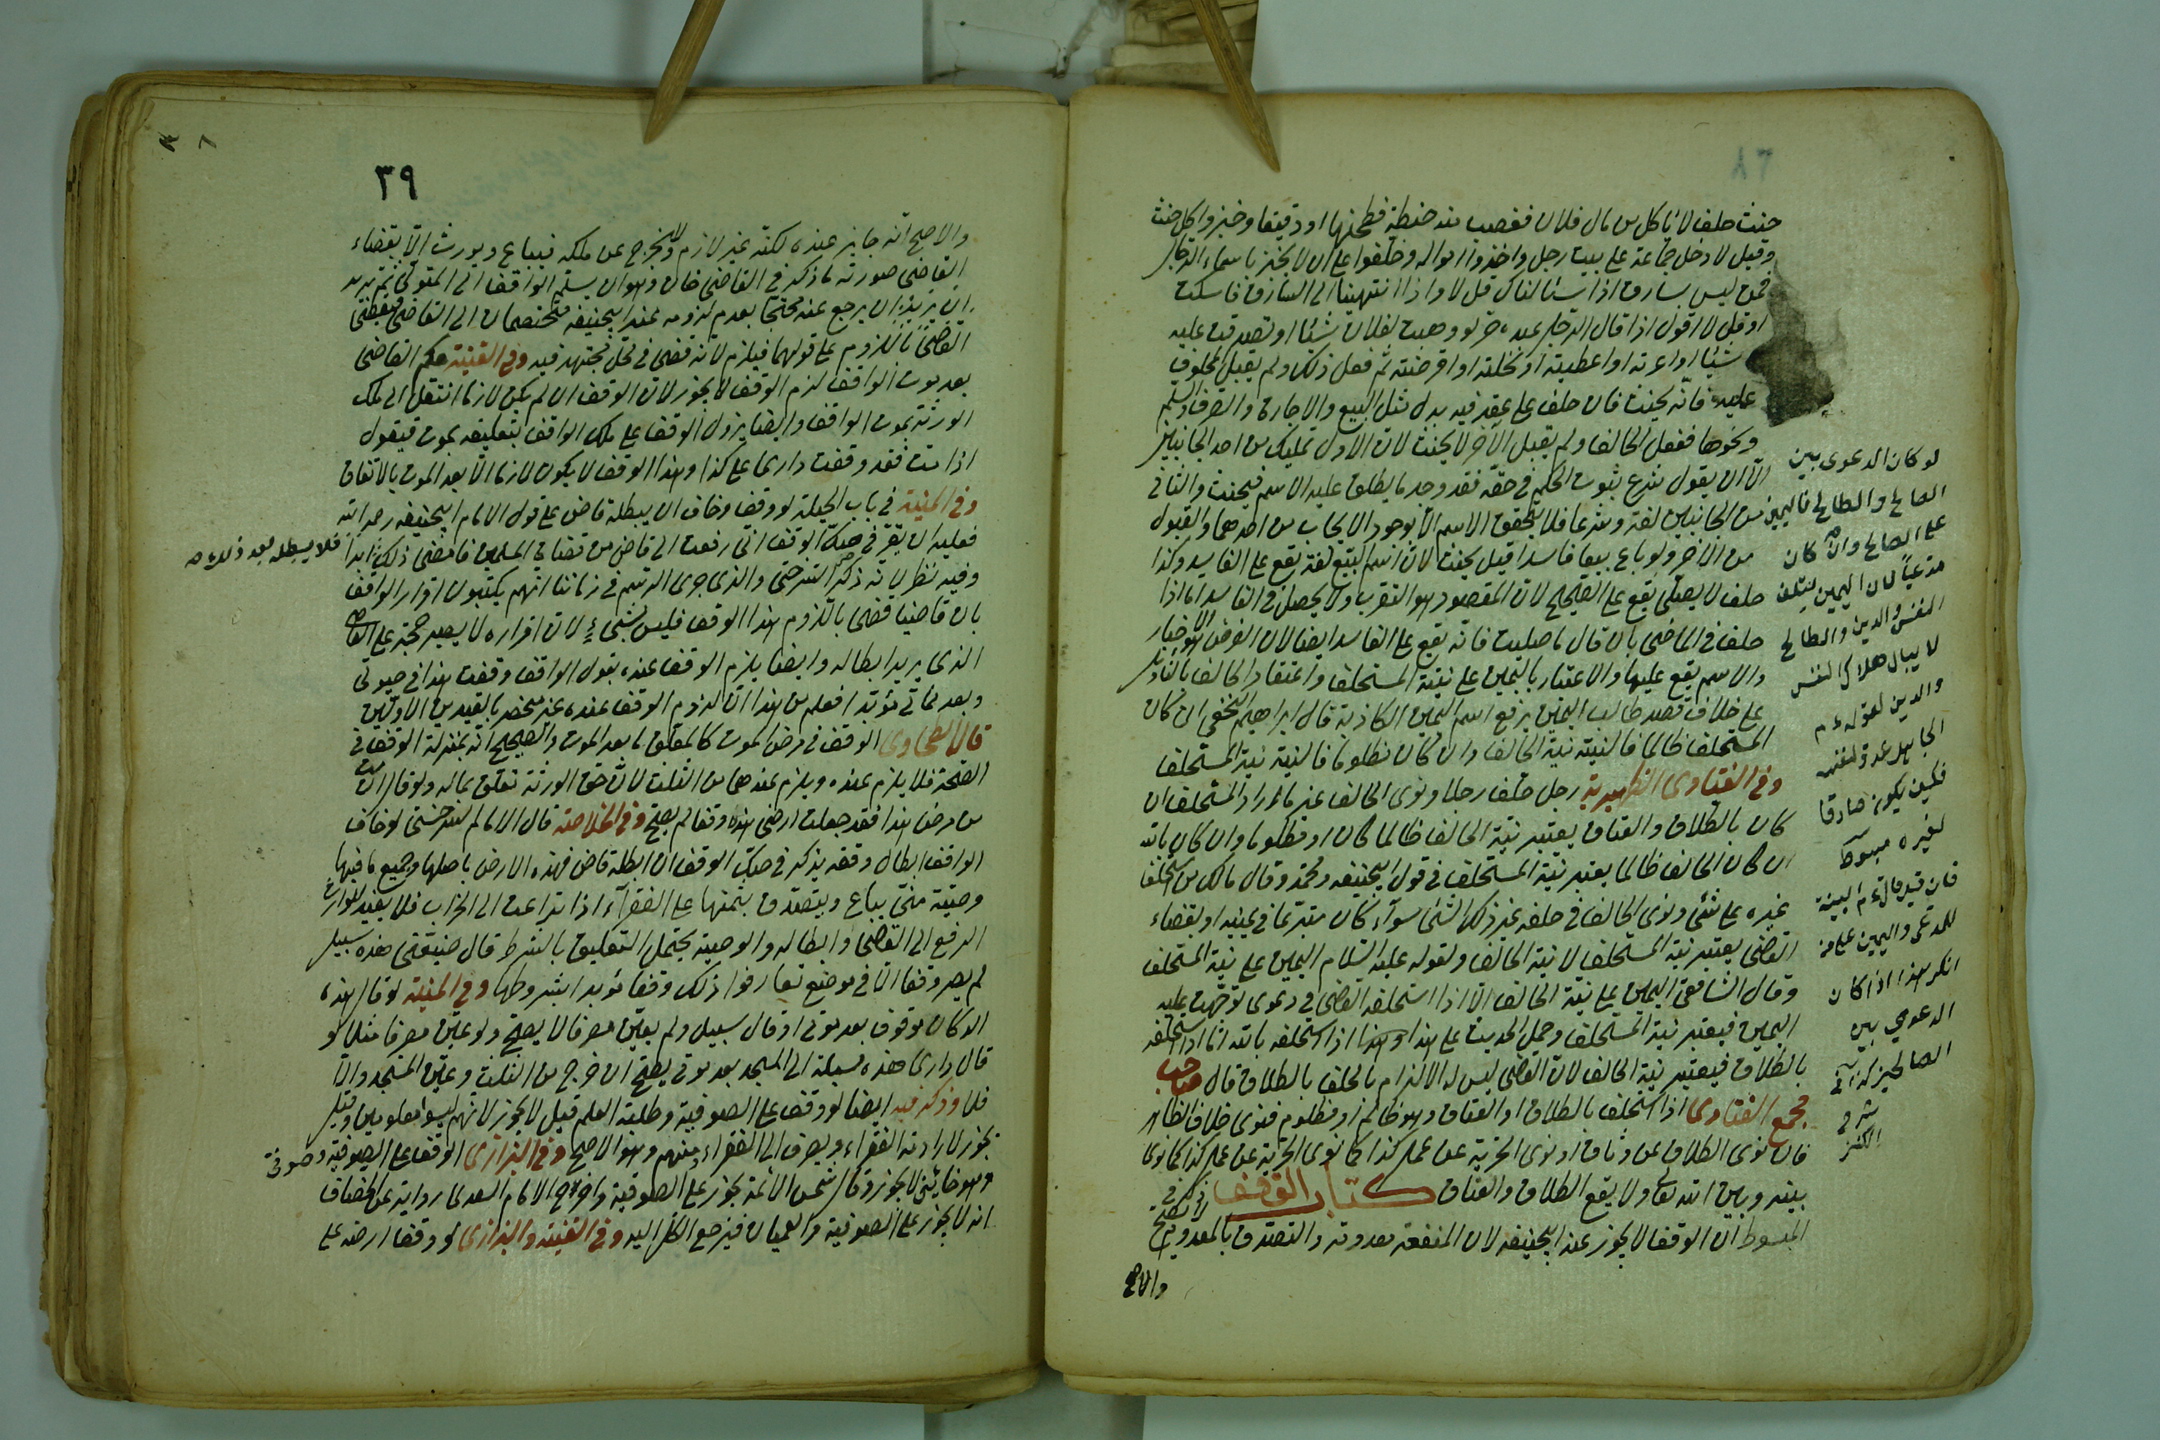 حنث حلف لا ياكل من مال فلان فغصب منه حنطة فطحنها او دقيقا وخبز واكل حنث
وقيل لا دخل جماعة على بيت رجل واخذوا امواله وحلفوا على ان لا يخبر باسماء الرجال
فمن ليس بسارق اذا سئلناك قل لا واذا انتهينا الى السارق فاسكت
او قل لا اقول اذا قال الرجل عبده حر لو وهبت لفلان شيئا او تصدقت عليه
شيئا او اعرته او اعطيته او نحلته او اقرضته ثم فعل ذلك ولم يقبل المحلوف
عليه فانه يحنث فان حلف على عقد فيه بدل مثل البيع والاجارة والصرف والسلم
ونحوها ففعل الحالف ولم يقبل الآخر لا يحنث لان الاول تمليك من احد الجانبين
الا ان يقول شرع ثبوت الحكم في حقه فقد وجد ما يطلق عليه الاسم فيحنث والثاني
من الجانبين لغة وشرعا فلا يتحقق الاسم الا بوجود الايجاب من احدهما والقبول
من الآخر ولو باع بيعا فاسدا قيل يحنث لان اسم البيع لغة يقع على الفاسد وكذا
حلف لا يصلي يقع على الصحيح لان المقصود هو التقرب ولا يحصل في الفاسد اما اذا
حلف في الماضي بان قال ما صليت فانه يقع على الفاسد ايضا لان الغرض هو الاخبار
والاسم يقع عليها والاعتبار باليمين على نية المستحلف واعتقاد الحالف بالتأويل
على خلاف قصد طالب اليمين يرفع اسم اليمين الكاذبة قال ابراهيم النخعي ان كان
المستحلف ظالما فالنية نية الحالف وان كان مظلوما فالنية نية المستحلف
وفي الفتاوى الظهيرية رجل حلف رجلا ونوى الحالف غير ما اراد المستحلف ان
كان بالطلاق والعتاق يعتبر نية الحالف ظالما كان او مظلوما وان كان بالله
ان كان الحالف ظالما يعتبر نية المستحلف في قول ابيحنيفه ومحمد وقال مالك من استحلف
غيره على شئ ونوى الحالف في حلفه غير ذلك الشئ سوآء كان متبرعا في يمينه او بقضاء
القاضي يعتبر نية المستحلف لا نية الحالف ولقوله عليه السلام اليمين على نية المستحلف
وقال الشافعي اليمين على نية الحالف الا اذا استحلفه القاضي في دعوى توجهت عليه
اليمين فيعتبر نية المستحلف وحمل الحديث على هذا وهذا اذا استحلفه بالله اما اذا استحلفه
بالطلاق فيعتبر نية الحالف لان القاضي ليس له الالزام بالحلف بالطلاق قال صاحب
مجمع الفتاوى اذا استحلف بالطلاق او العتاق وهو ظالم او مظلوم فنوى خلاف الظاهر
فان نوى الطلاق عن وثاق او نوى الحرية عن عمل كذا كما نوى الحرية عن عمل كذا كما نوى
بينه وبين الله تعالى ولا يقع الطلاق والعتاق كتاب الوقف ذكر في
المبسوط ان الوقف لا يجوز عند ابيحنيفه لان المنفعة معدومة والتصدق بالمعدوم لا يصح
والاصح
لو كان الدعوى بين
الصالح والطالح فاليمين
على الصالح وان كان
مدعيا لان اليمين لتلف
النفس والدين والطالح
لا يبال هلاك النفس
والدين لقوله عم
الجاهل عدو لنفسه
فكيف يكون صادقا
لغيره مبسوط
فان قيل قال عم البينة
للمدعي واليمين على من
انكر هذا اذا كان
الدعوى بين
الصالحين كذا في
شرح
الكنز
٣٨
٣٩
والاصح انه جايز عنده لكنه غير لازم ولا يخرج عن ملكه فيباع ويورث الا بقضاء
القاضي صورته ما ذكر في القاضي خان وهو ان يسلم الواقف الى المتولي ثم يريد
ان يريد ان يرجع عنه محتجا بعدم لزومه عند ابيحنيفه فيختصمان الى القاضي فيقضي
القاضي باللزوم على قولهما فيلزم لانه قضى في محل مجتهد فيه وفي القنية حكم القاضي
بعد موت الواقف لزم الوقف لا يجوز لان الوقف ان لم يكن لازما انتقل الى ملك
الورثة بموت الواقف وايضا يزول الوقف على ملك الواقف بتعليقه بموت فيقول
اذا مت فقد وقفت داري على كذا وهذا الوقف لا يكون لازما الا بعد الموت بالاتفاق
وفي المنية في باب الحيلة لو وقف وخاف ان يبطله قاض على قول الامام ابيحنيفه رحمه الله
فعليه ان يقر في صك الوقف اني رفعت الى قاض من قضاة المسلمين فامضى ذلك ابدا فلا يبطله بعد ذلك صه
وفيه نظر لانه ذكر السرخسي والذي جرى الرسم في زماننا انهم يكتبون اقرار الواقف
بان قاضيا قضى باللزوم هذا الوقف فليس بشيء لان اقراره لا يصير حجة على القاضي
الذي يريد ابطاله وايضا يلزم الوقف عنده بقول الواقف وقفت هذا في حيوتي
وبعد مماتي مؤبدا فعلم من هذا ان لزوم الوقف عنده غير منحصر بالقيدين الاولين
قال الطحاوي الوقف في مرض الموت كالمعلق بما بعد الموت والصحيح انه بمنزلة الوقف في
الصحة فلا يلزم عنده ويلزم عندهما من الثلث لان حق الورثة تعلق بماله ولو قال ان مت
من مرضي هذا فقد جعلت ارضي هذه وقفا لم يصح وفي الخلاصة قال الامام السرخسي لو خاف
الواقف ابطال وقفه يذكر في صك الوقف ان ابطله قاض فهذه الارض باصلها وجميع ما فيها
وصيته مني يباع ويتصدق بثمنها على الفقرآء اذا تداعت الى الخراب فلا يفيد للوارث
الرفع الى القاضي وابطاله والوصية يحتمل التعليق بالشرط قال ضيعتي هذه سبيل
لم يصر وقفا الا في موضع تعارفوا ذلك وقفا مؤبدا بشروطها وفي المنية لو قال هذه
الدكان موقوف بعد موتي او قال سبيل ولم يعين مصرفا لا يصح ولو عين مصرفا مثلا لو
قال داري هذه مسبلة الى المسجد بعد موتي يصح ان خرج من الثلث وعين المسجد والا
فلا وذكر فيه ايضا لو وقف على الصوفية وطلبة العلم قيل لا يجوز لانهم ليسوا معلومين وقيل
يجوز لارادته الفقراء ويصرف الى الفقراء منهم وهو الاصح وفي البزازي الوقف على الصوفية وصوفي
وهو خانية لا يجوز وقال شمس الائمة يجوز على الصوفية واخرج الامام السعدي رواية عن الخصاف
انه لا يجوز على الصوفية والعميان فرجع الكل اليه وفي القنية والبزازي لو وقف ارضه على